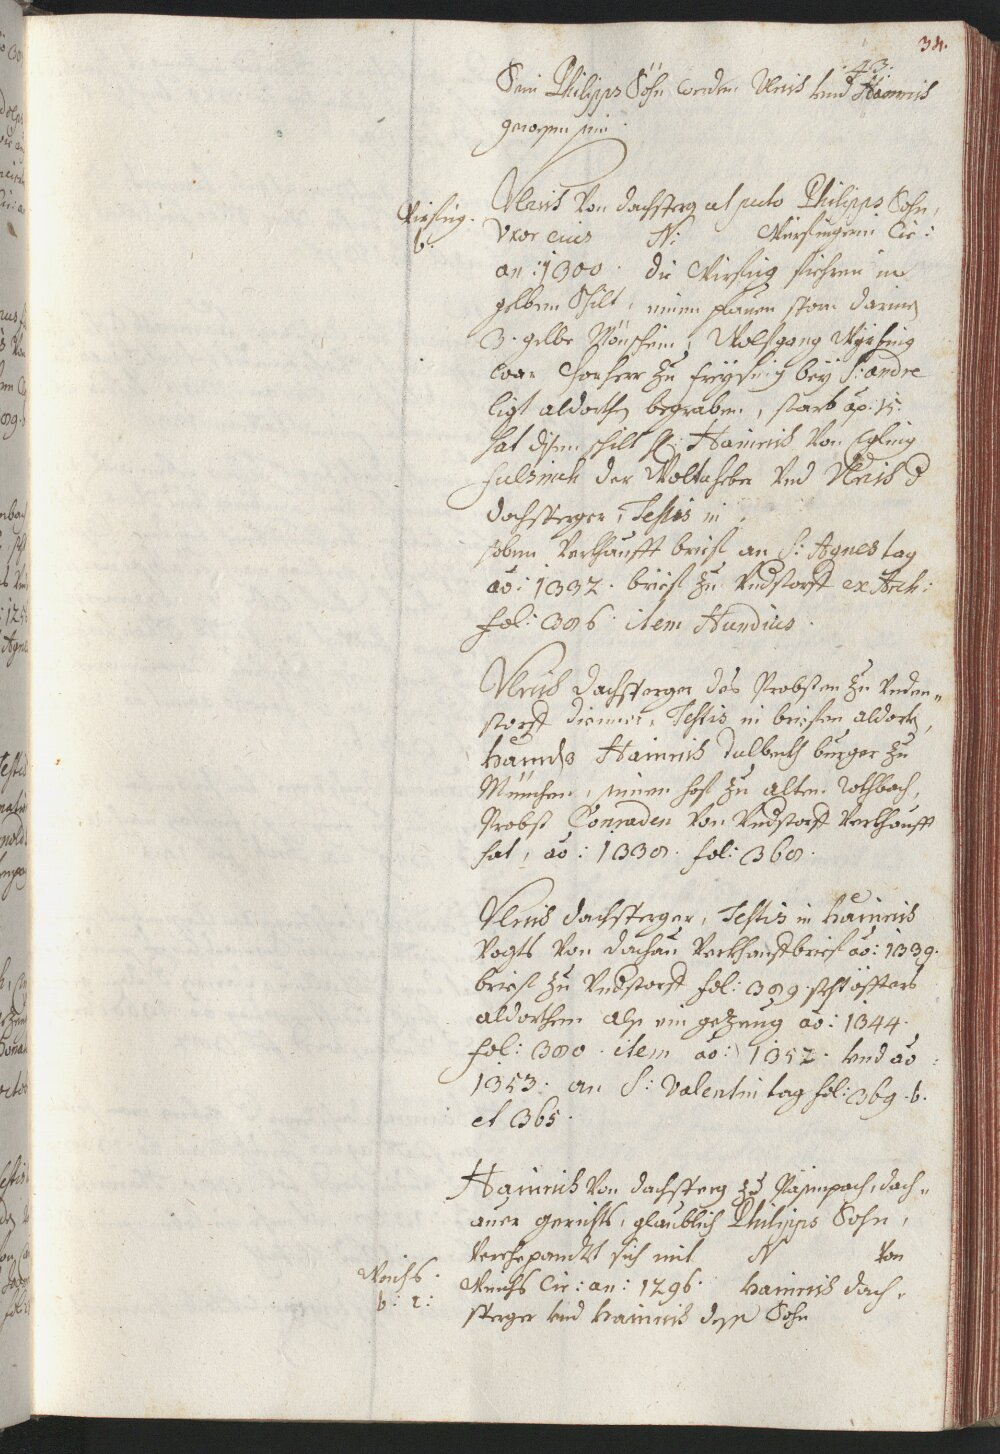 34.
43.
Sein Philipps Söhn werden Ulrich und Hainrich
gewesen sein.
Ulrich von Dachsperg ut puto Philipps Sohn,
Mirsing. Uxor eius N: Mirsingerin Cir:
b. an: 1300. die Mirsing fiehren im
gelben Schilt, einen plauen darinen
3. gelbe Mönschein, Wolfgang Mirsing
war Chorherr zu Freysing bey S: andre
ligt aldorthen begraben, starb ao: 15.
hat disen schilt Hainrich von Egling
der und Ulrich d
Dachsperger, Testis in
einem verkhaufft brief an S: Agnes tag
ao: 1332. brief zu Undstorff ex Arch:
fol: 386. item Hundius.
Ulrich Dachsperger des Probsten zu Unden=
storff diener, Testis in briefen aldort,
Hainrich burger zu
München, einen hof zu alten Rothbach,
Probst Conraden von Undstorff verkhaufft
hat, ao: 1338. fol: 368.
Ulrich Dachsperger, Testis in Hainrich
Vogts von Dachau verkhaufbrief ao: 1339.
brief zu Undstorff fol: 389. ist öffters
aldorthen als ein gezeug ao: 1344.
fol: 380. item ao: 1352. und ao
1353. an S: Valentin tag fol: 369. b.
et 365.
Hainrich von Dachsperg zu dach=
auer gerichts, glaublich Philipps Sohn,
sich mit N von
Weichs. Weichs Cir: an: 1296. Hainrich dach=
b: r: sperger und Hainrich dess Sohn